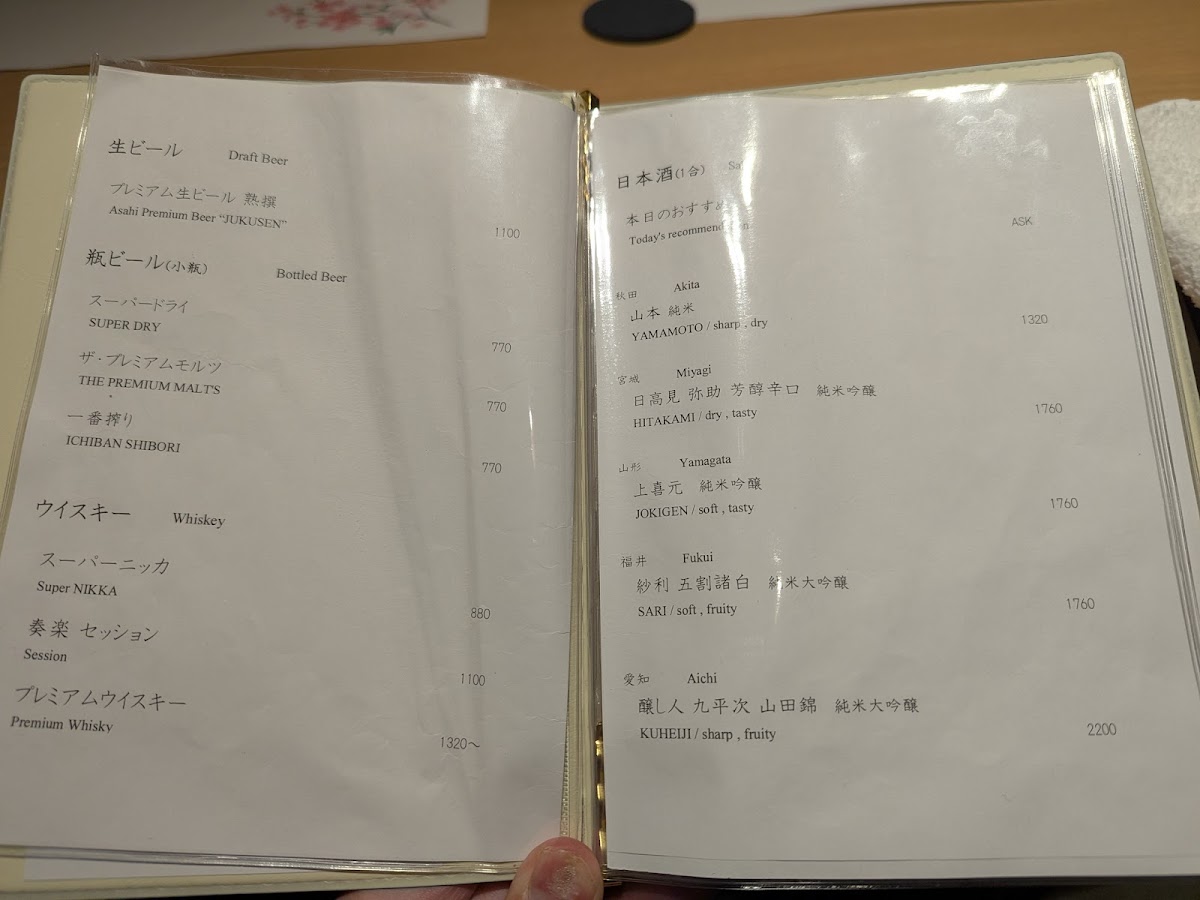 生ビール Draft Beer
プレミアム生ビール 熟撰
Asahi Premium Beer “JUKUSEN”
1100
瓶ビール(小瓶) Bottled Beer
スーパードライ
SUPER DRY
770
ザ・プレミアムモルツ
THE PREMIUM MALT'S
770
一番搾り
ICHIBAN SHIBORI
770
ウイスキー Whiskey
スーパーニッカ
Super NIKKA
880
奏楽 セッション
Session
1100
プレミアムウイスキー
Premium Whisky
1320～
日本酒(1合)
本日のおすすめ
Today's
ASK
秋田 Akita
山本 純米
YAMAMOTO / sharp , dry
1320
宮城 Miyagi
日高見 弥助 芳醇辛口 純米吟醸
HITAKAMI / dry , tasty
1760
山形 Yamagata
上喜元 純米吟醸
JOKIGEN / soft , tasty
1760
福井 Fukui
紗利 五割諸白 純米大吟醸
SARI / soft , fruity
1760
愛知 Aichi
醸し人 九平次 山田錦 純米大吟醸
KUHEIJI / sharp , fruity
2200